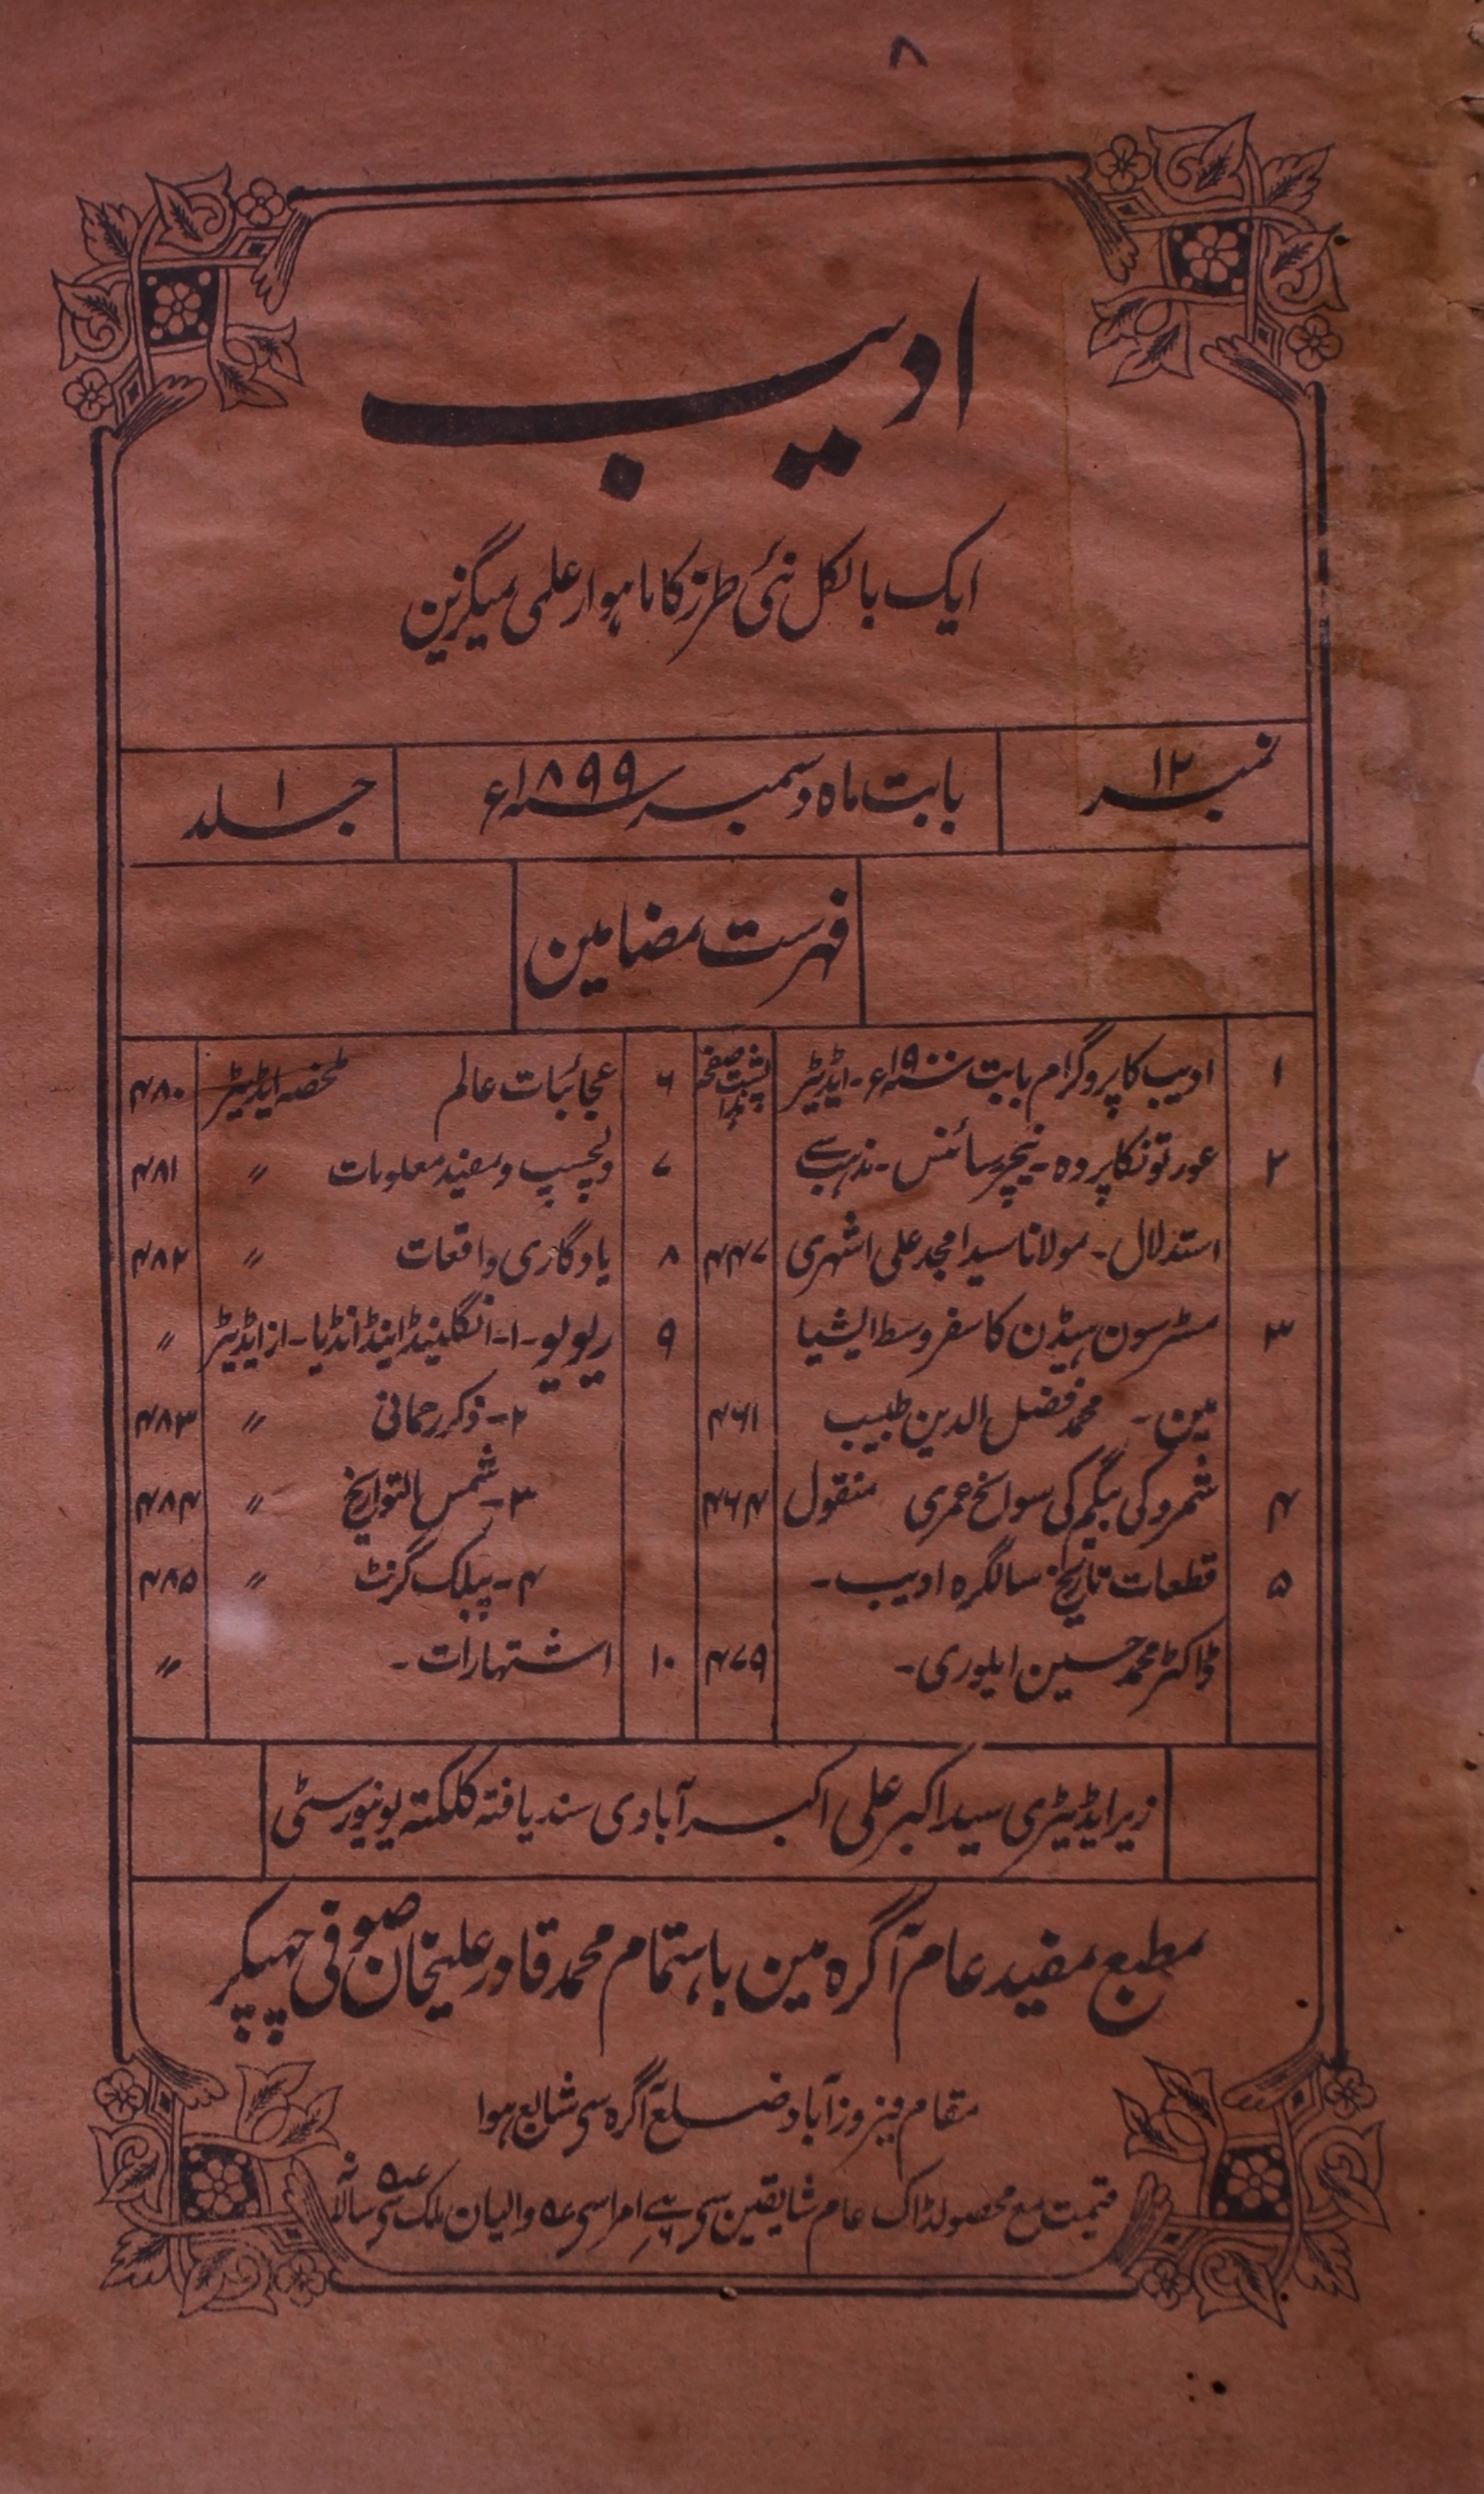 ۸
ادیب
ایک بالکل نئی طرز کا ماہوار علمی میگزین
نمبر ۱۲
بابت ماہ دسمبر سنہ ۱۸۹۹ء
جلد ۱
فہرست مضامین
۱ ادیب کا پروگرام بابت سنہ ۱۹۰۰ء - ایڈیٹر پشت صفحہ
۲ عورتونکا پردہ - نیچر سائنس - مذہب سے
استدلال - مولانا سید امجد علی اشہری ۴۴۷
۳ مسٹر سون ہیڈن کا سفر وسط ایشیا
مین - محمد فضل الدین طبیب ۴۶۱
۴ شمرو کی بیگم کی سوانح عمری منقول ۴۶۴
۵ قطعات تاریخ سالگرہ ادیب -
ڈاکٹر محمد حسین ایلوری - ۴۷۹
۶ عجائبات عالم ملخصہ ایڈیٹر ۴۸۰
۷ دلچسپ و مفید معلومات 〃 ۴۸۱
۸ یادگاری واقعات 〃 ۴۸۲
۹ ریویو - ۱ - انگلینڈ اینڈ انڈیا - از ایڈیٹر 〃
۲ - ذکر رحمانی 〃 ۴۸۳
۳ - شمس التواریخ 〃 ۴۸۴
۴ - پبلک گزٹ 〃 ۴۸۵
۱۰ اشتہارات - 〃
زیر ایڈیٹری سید اکبر علی اکبرآبادی سند یافتہ کلکتہ یونیورسٹی
مطبع مفید عام آگرہ مین باہتمام محمد قادر علیخان صوفی چھپکر
مقام فیروزآباد ضلع آگرہ سی شایع ہوا
قیمت مع محصولڈاک عام شایقین سی امرا سی والیان ملک سی سالانہ